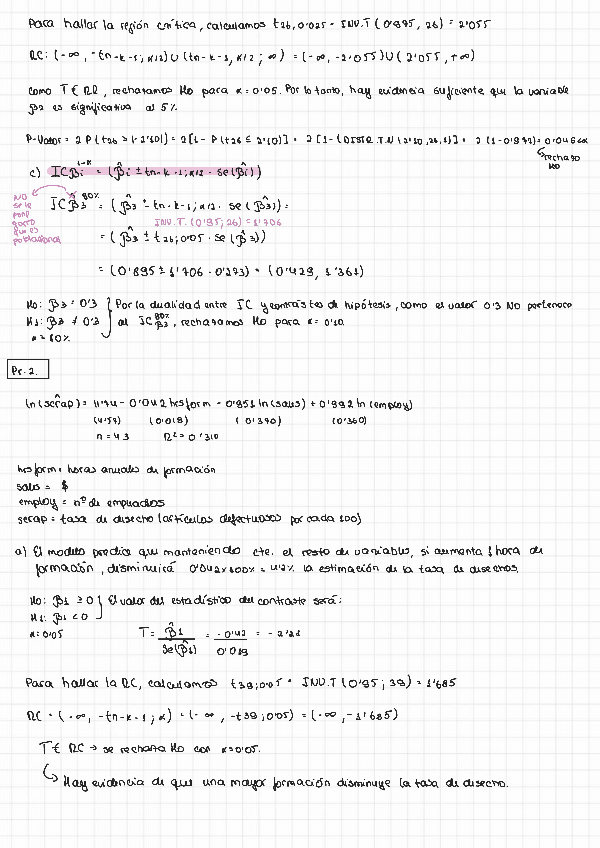 Para hallar la región crítica, calculamos t26,0'025 = INV.T (0'975, 26) = 2'055
RC: (-∞, -tn-k-1; α/2) ∪ (tn-k-1, α/2 ; ∞) = (-∞, -2'055) ∪ (2'055, +∞)
Como T ∈ RR, rechazamos H0 para α = 0'05. Por lo tanto, hay evidencia suficiente que la variable
β2 es significativa al 5%
P-Valor = 2 P (t26 > |-2'10|) = 2 [1 - P (t26 ≤ 2'10)] = 2 [1 - (DISTR.T.N (2'10, 26, 1)] = 2 (1 - 0'977) = 0'046 < α
↳ rechazo
H0
c) IC βi 1-α = (β̂i ± tn-k-1; α/2 · se (β̂i))
NO
se le
pone
gorro
que es
poblacional
IC β3 90% = (β̂3 ± tn-k-1; α/2 · se (β̂3)) =
INV.T. (0'95; 26) = 1'706
= (β̂3 ± t26; 0'05 · se (β̂3))
= (0'895 ± 1'706 · 0'273) = (0'429, 1'361)
H0: β3 = 0'3 } Por la dualidad entre IC y contrastes de hipótesis, como el valor 0'3 NO pertenece
H1: β3 ≠ 0'3 al IC β3 90%, rechazamos H0 para α = 0'10
α = 10%
Pr. 2.
ln (scrap) = 11'74 - 0'042 hrsform - 0'951 ln (sales) + 0'992 ln (employ)
(4'57) (0'019) (0'370) (0'360)
n = 43 R² = 0'310
hrsform = horas anuales de formación
sales = $
employ = nº de empleados
scrap = tasa de desecho (artículos defectuosos por cada 100)
a) El modelo predice que manteniendo cte. el resto de variables, si aumenta 1 hora de
formación, disminuirá 0'042 x 100% = 4'2% la estimación de la tasa de desechos.
H0: β1 ≥ 0 } El valor del estadístico del contraste será:
H1: β1 < 0
α = 0'05 T = β̂1 / se(β̂1) = -0'42 / 0'019 = -2'21
Para hallar la RC, calculamos t39; 0'05 = INV.T (0'95; 39) = 1'685
RC = (-∞, -tn-k-1; α) = (-∞, -t39; 0'05) = (-∞, -1'685)
T ∈ RC → se rechaza H0 con α = 0'05.
↳ Hay evidencia de que una mayor formación disminuye la tasa de desecho.